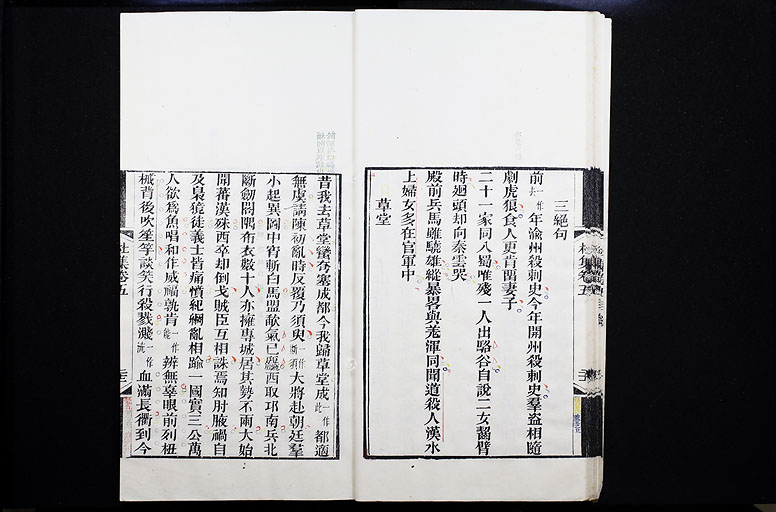 三絕句
前一作去年渝州殺刺史今年開州殺刺史羣盜相隨
劇虎狼食人更肯畱妻子
二十一家同入蜀唯殘一人出駱谷自說二女齧臂
時迴頭却向秦雲哭
殿前兵馬雖驍雄縱暴畧與羌渾同聞道殺人漢水
上婦女多在官軍中
草堂
昔我去草堂蠻夷塞成都今我歸草堂成一作此都適
無虞請陳初亂時反覆乃須臾一作斯須大將赴朝廷羣
小起異圖中宵斬白馬盟歃氣已麤西取邛南兵北
斷劒閣隅布衣數十人亦擁專城居其勢不兩大始
聞蕃漢殊西卒却倒戈賊臣互相誅焉知肘腋禍自
及梟獍徒義士皆痛憤紀綱亂相踰一國實三公萬
人欲爲魚唱和作威福孰肯一作能辨無辜眼前列杻
械背後吹笙竽談笑行殺戮濺一作流血滿長衢到今
杜集卷五